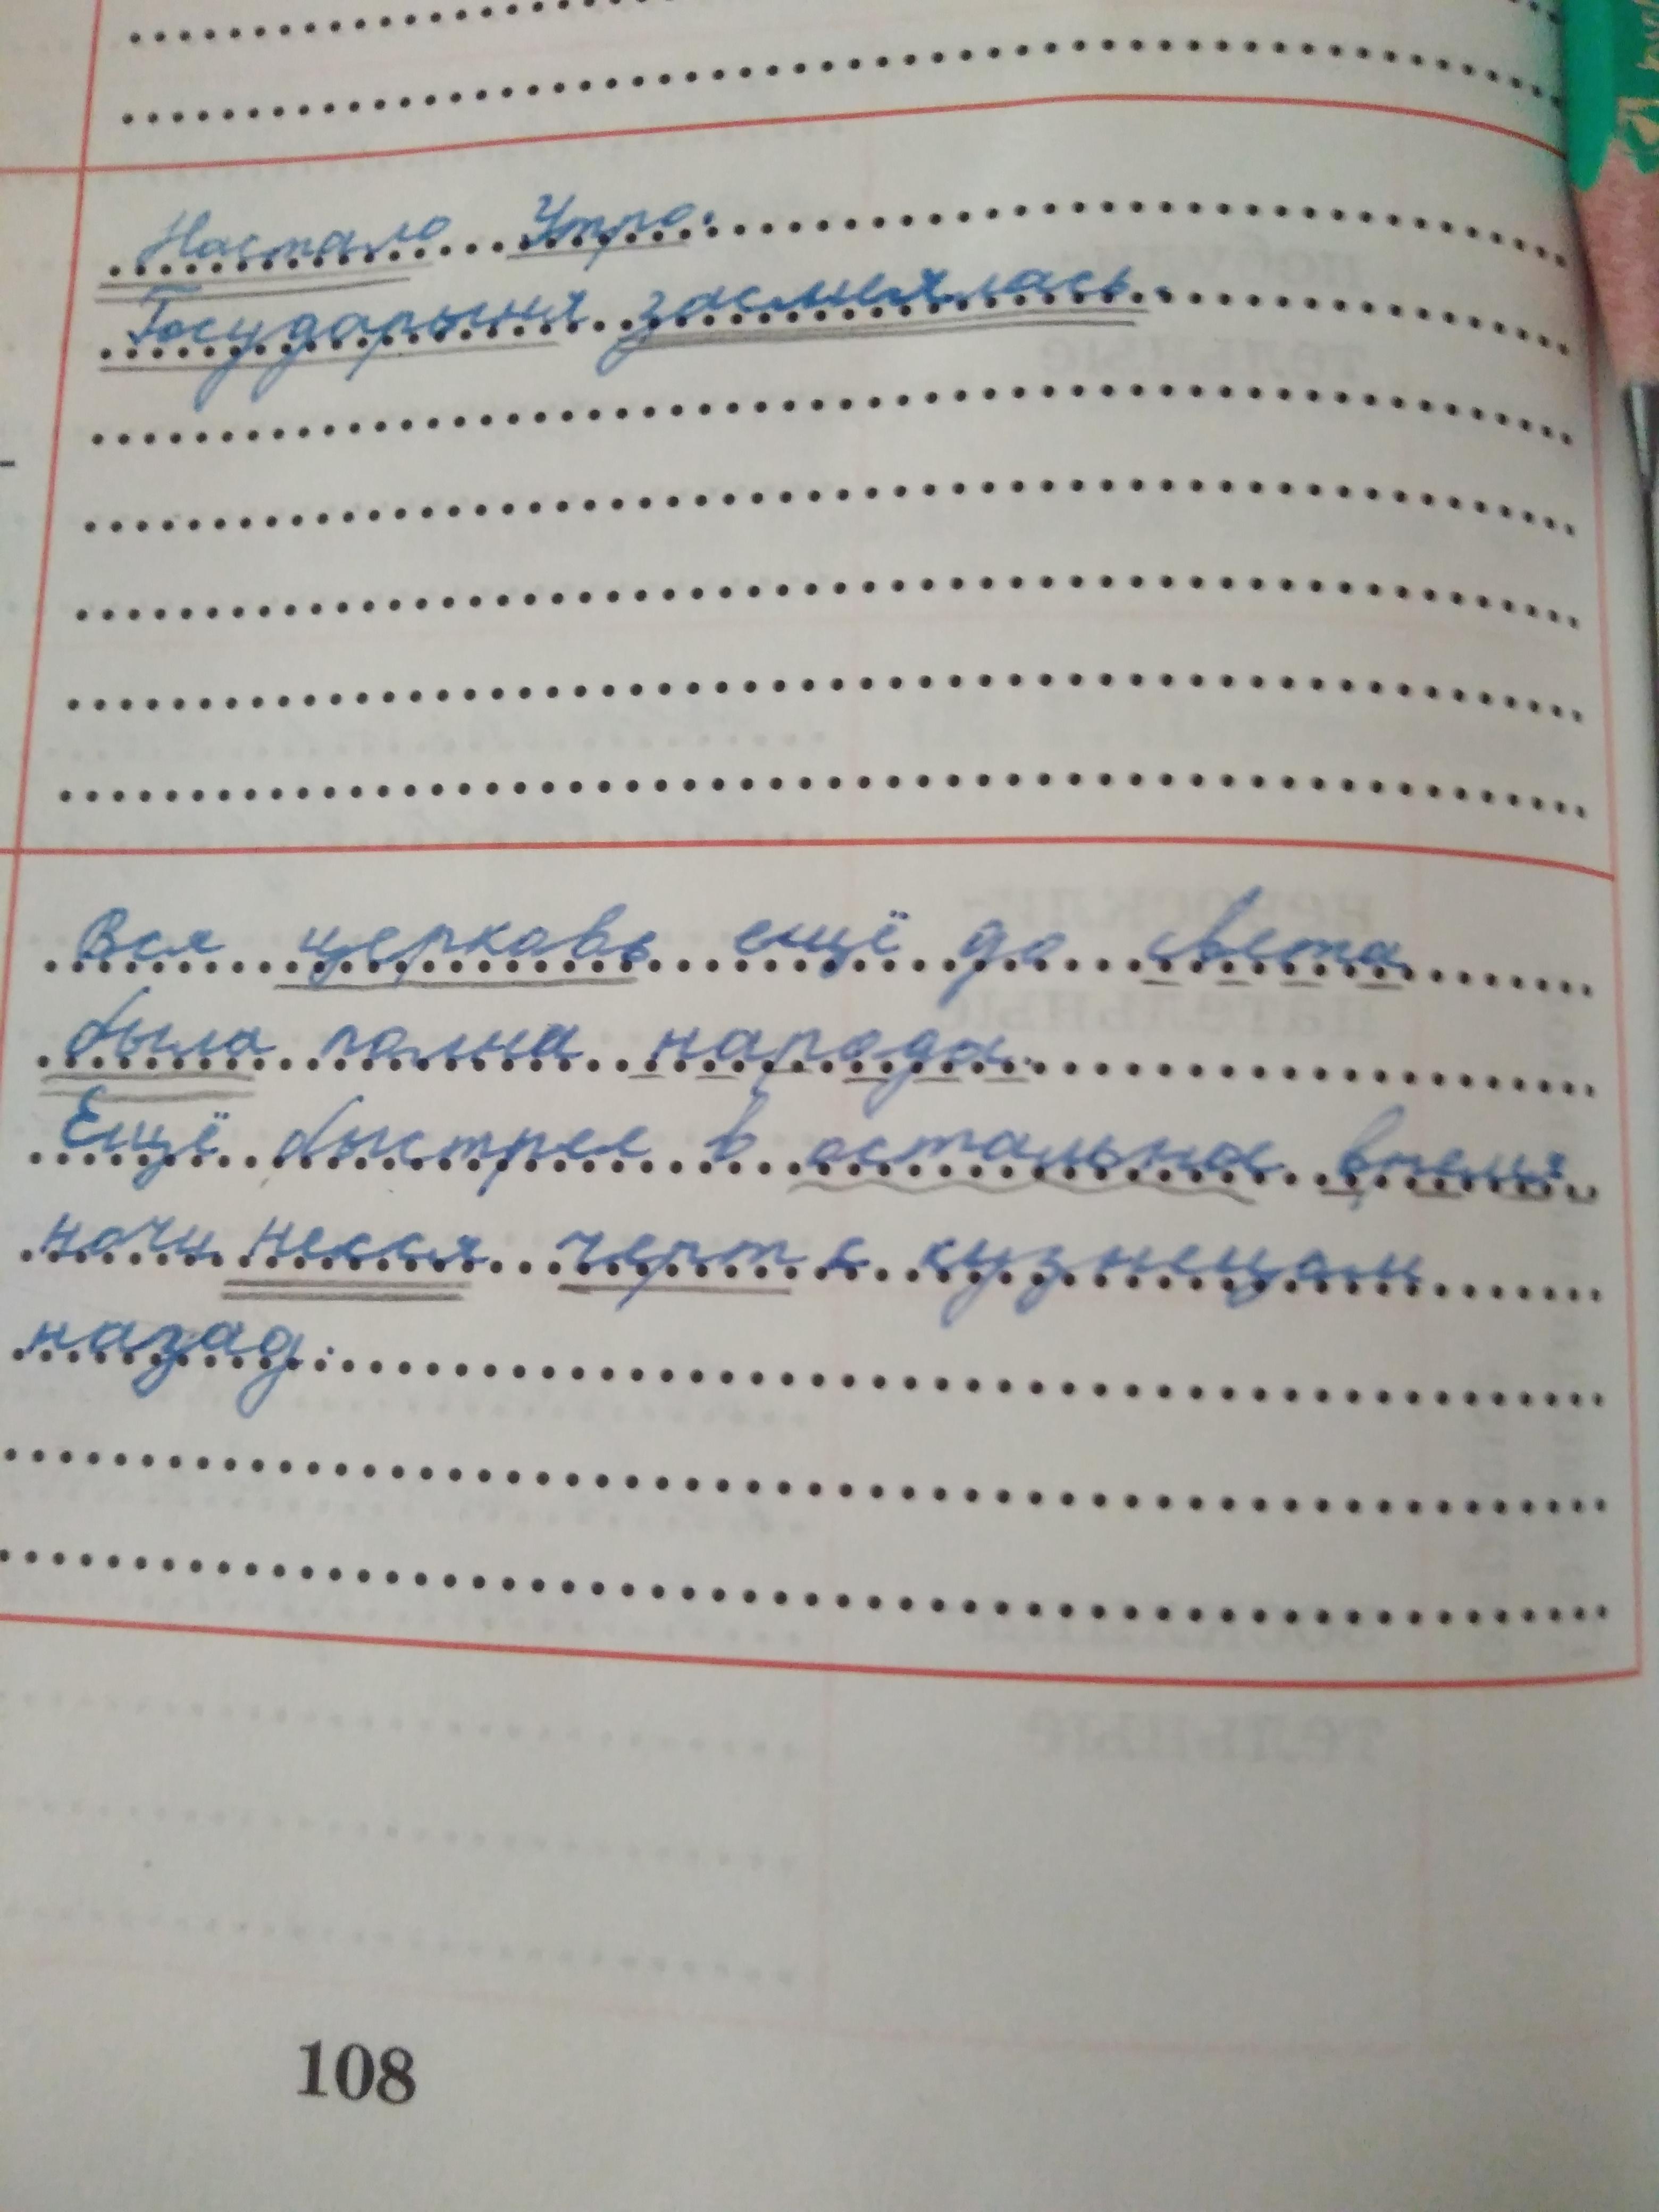 Настало Утро.
Государыня засмеялась.
Вся церковь ещё до света
была полна народа.
Ещё быстрее в остальное время
ночи несся черт с кузнецом
назад.
108